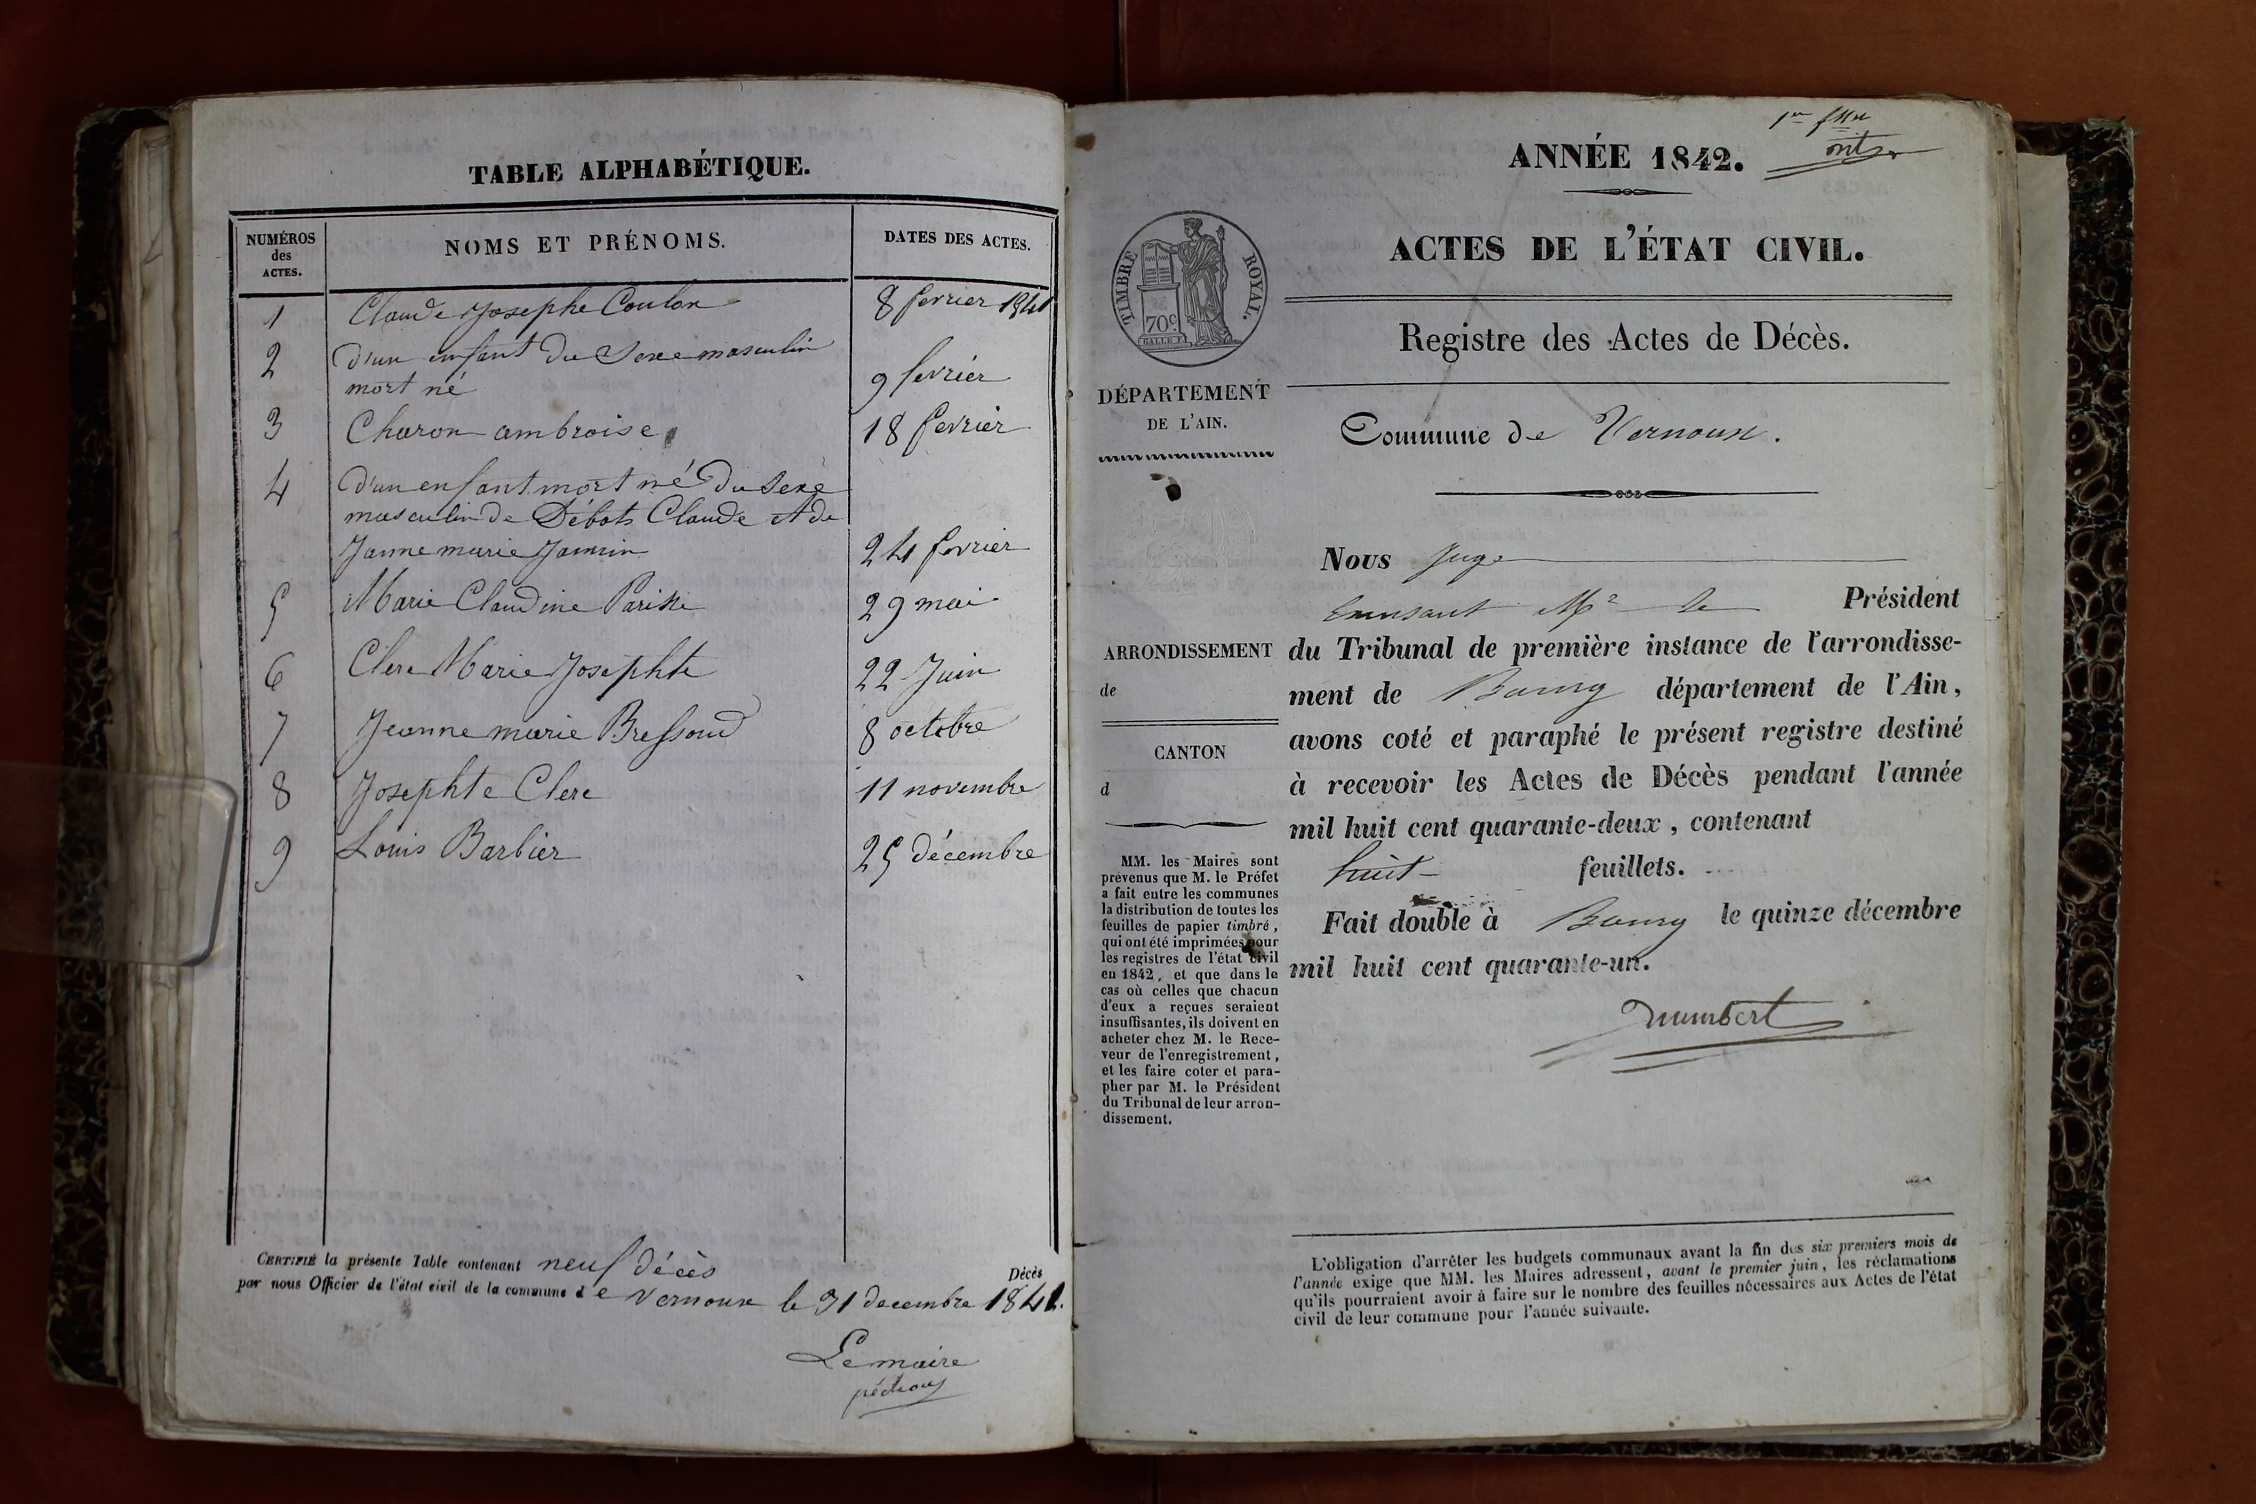 TABLE ALPHABÉTIQUE.
NUMÉROS des ACTES. NOMS ET PRÉNOMS. DATES DES ACTES.
1 Claude Josephe Coulon 8 fevrier 1841
2 d'un enfant du Sexe masculin
mort né 9 fevrier
3 Charon ambroise 18 fevrier
4 d'un enfant mort né du Sexe
masculin de Débots Claude et de
Janne marie Jannin 24 fevrier
5 Marie Claudine 29 mai
6 Clerc Marie Josephte 22 Juin
7 Jeanne marie Bressoud 8 octobre
8 Josephte Clerc 11 novembre
9 Louis Barbier 25 décembre
CERTIFIÉ la présente Table contenant neuf décès Décès
par nous Officier de l'état civil de la commune de Vernoux le 31 decembre 1841.
Le maire
ANNÉE 1842.
ACTES DE L'ÉTAT CIVIL.
TIMBRE ROYAL.
70c
Registre des Actes de Décès.
DÉPARTEMENT
DE L'AIN.
Commune de Vernoux.
Nous Juge
Mr le Président
du Tribunal de première instance de l'arrondisse-
ment de Bourg département de l'Ain,
avons coté et paraphé le présent registre destiné
à recevoir les Actes de Décès pendant l'année
mil huit cent quarante-deux, contenant
huit feuillets.
Fait double à Bourg le quinze décembre
mil huit cent quarante-un.
ARRONDISSEMENT
de
CANTON
d
MM. les Maires sont
prévenus que M. le Préfet
a fait entre les communes
la distribution de toutes les
feuilles de papier timbré,
qui ont été imprimées pour
les registres de l'état civil
en 1842, et que dans le
cas où celles que chacun
d'eux a reçues seraient
insuffisantes, ils doivent en
acheter chez M. le Rece-
veur de l'enregistrement,
et les faire coter et para-
pher par M. le Président
du Tribunal de leur arron-
dissement.
L'obligation d'arrêter les budgets communaux avant la fin des six premiers mois de
l'année exige que MM. les Maires adressent, avant le premier juin, les réclamations
qu'ils pourraient avoir à faire sur le nombre des feuilles nécessaires aux Actes de l'état
civil de leur commune pour l'année suivante.